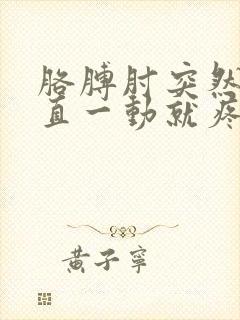 胳膊肘突然
直一動就疼
黃子寧